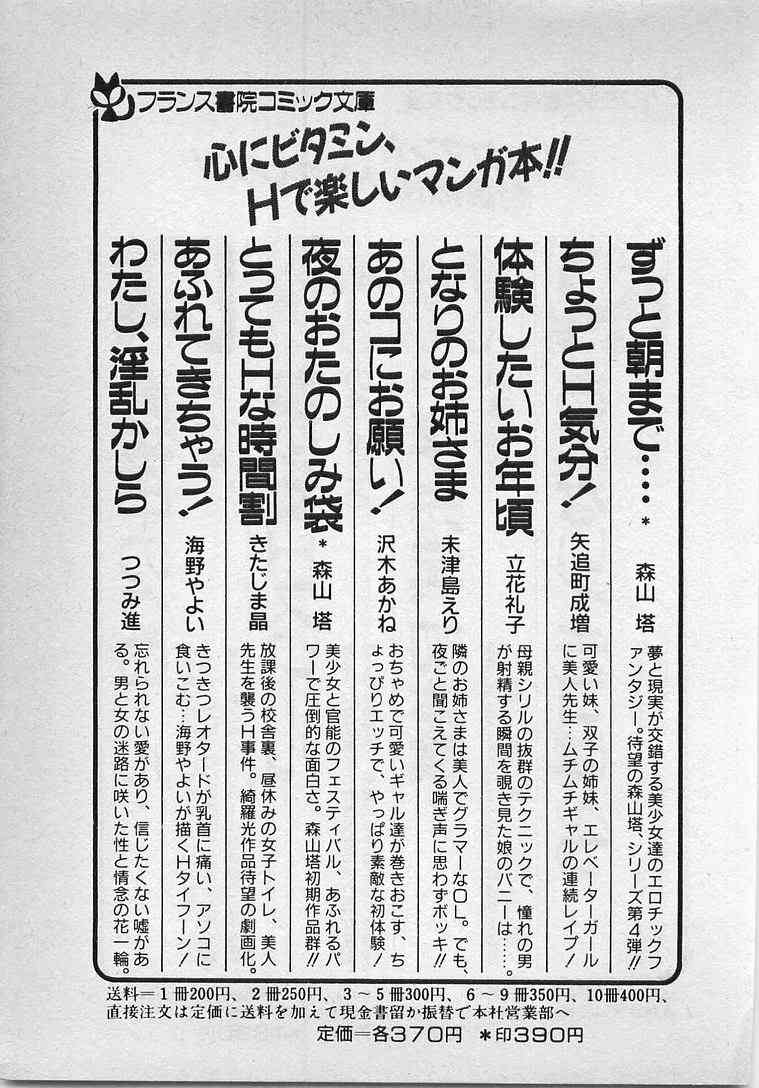 フランス書院コミック文庫
心にビタミン、
Hで楽しいマンガ本!!
ずっと朝まで‥‥ * 森山 塔
夢と現実が交錯する美少女達のエロチックフ
ァンタジー。待望の森山塔、シリーズ第4弾!!
ちょっとH気分! 矢追町成増
可愛い妹、双子の姉妹、エレベーターガール
に美人先生…ムチムチギャルの連続レイプ!
体験したいお年頃 立花礼子
母親シリルの抜群のテクニックで、憧れの男
が射精する瞬間を覗き見た娘のバニーは……。
となりのお姉さま 未津島えり
隣のお姉さまは美人でグラマーなOL。でも、
夜ごと聞こえてくる喘ぎ声に思わずボッキ!!
あのコにお願い! 沢木あかね
おちゃめで可愛いギャル達が巻きおこす、ち
ょっぴりエッチで、やっぱり素敵な初体験!
夜のおたのしみ袋 * 森山 塔
美少女と官能のフェスティバル、あふれるパ
ワーで圧倒的な面白さ。森山塔初期作品群!!
とってもHな時間割 きたじま晶
放課後の校舎裏、昼休みの女子トイレ、美人
先生を襲うH事件。綺羅光作品待望の劇画化。
あふれてきちゃう! 海野やよい
きつきつレオタードが乳首に痛い、アソコに
食いこむ…海野やよいが描くHタイフーン!
わたし、淫乱かしら つつみ進
忘れられない愛があり、信じたくない嘘があ
る。男と女の迷路に咲いた性と情念の花一輪。
送料=1冊200円、2冊250円、3~5冊300円、6~9冊350円、10冊400円、
直接注文は定価に送料を加えて現金書留か振替で本社営業部へ
定価=各370円 *印390円